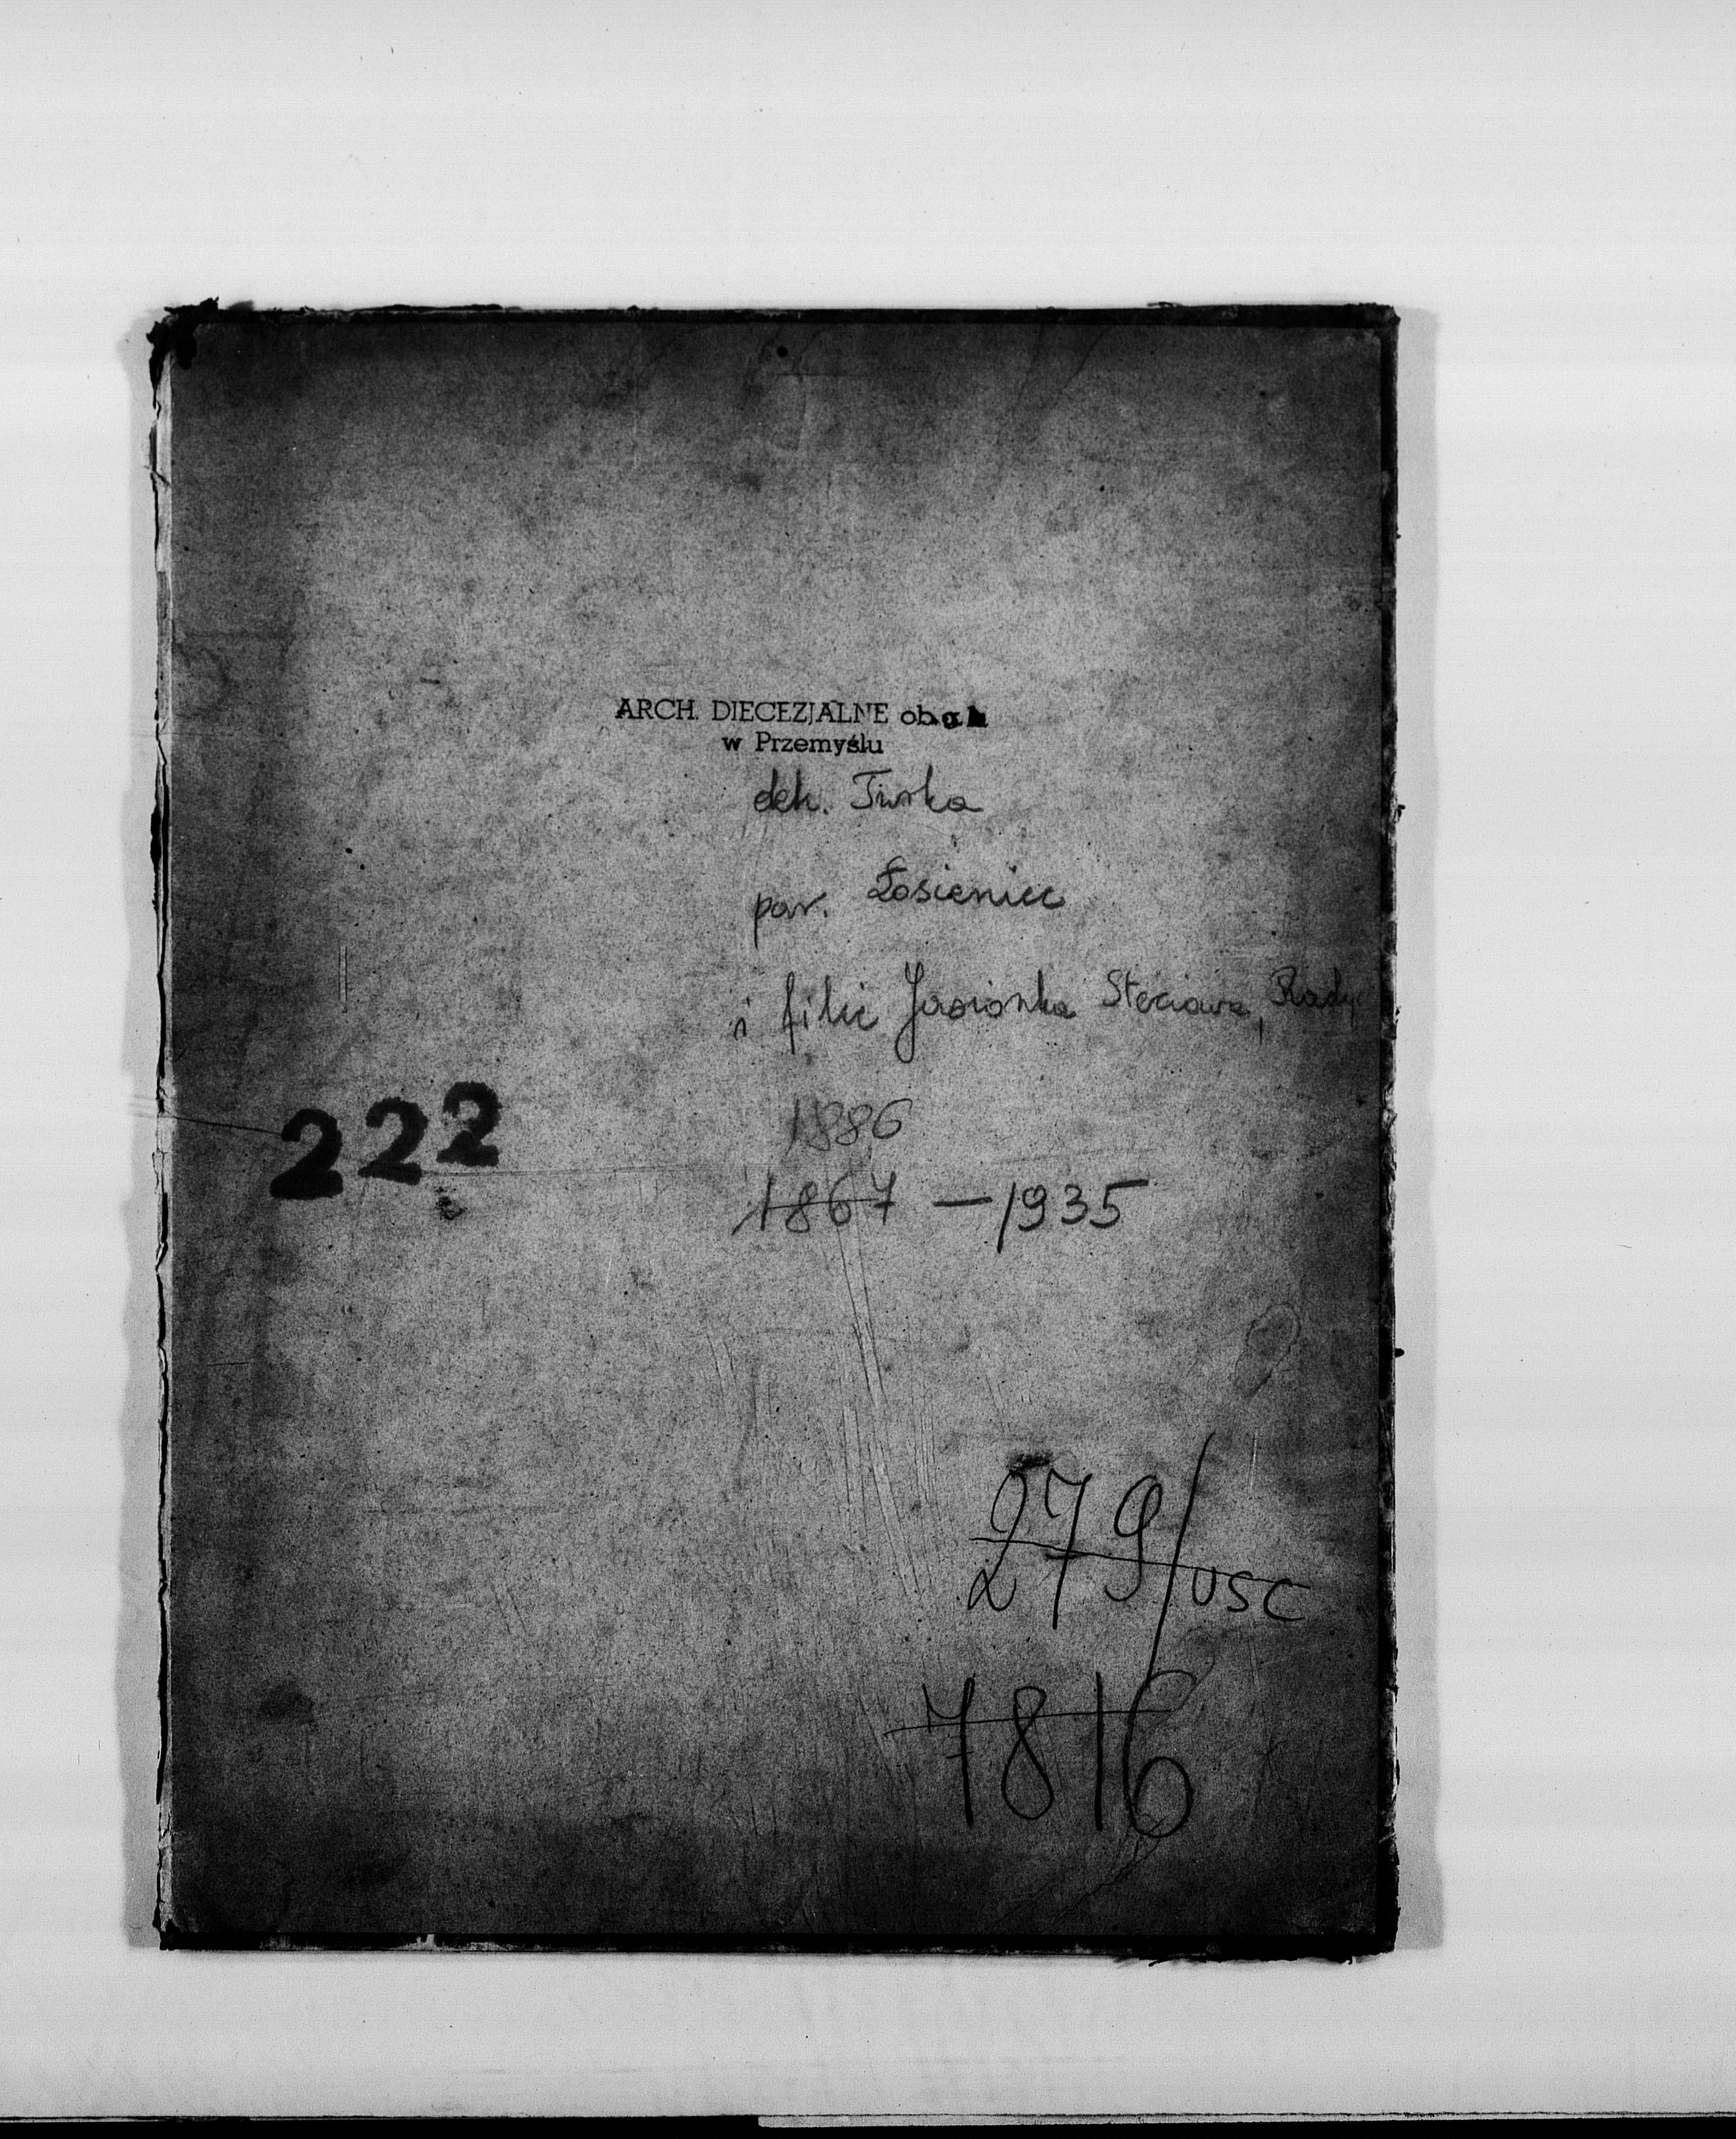 ARCH. DIECEZJALNE ob. gk
w Przemyślu
dek. Turka
par. Łosieniec
i filie Jasionka Steciowa, Rady
222
1886
1867 — 1935
279/USC
7816